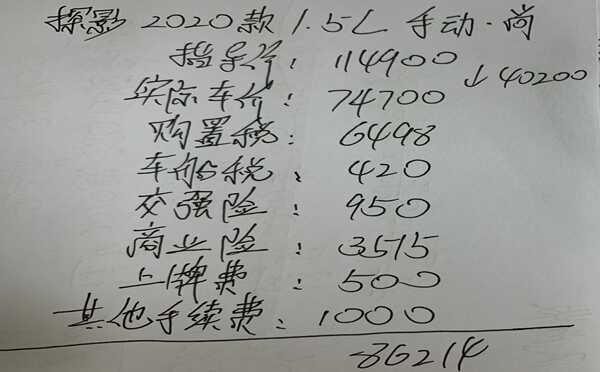 探影 2020款 1.5L 手动·尚
指导价: 114900
↓40200
实际车价: 74700
购置税: 6498
车船税、420
交强险: 950
商业险: 3515
上牌费: 500
其他手续费: 1000
86214